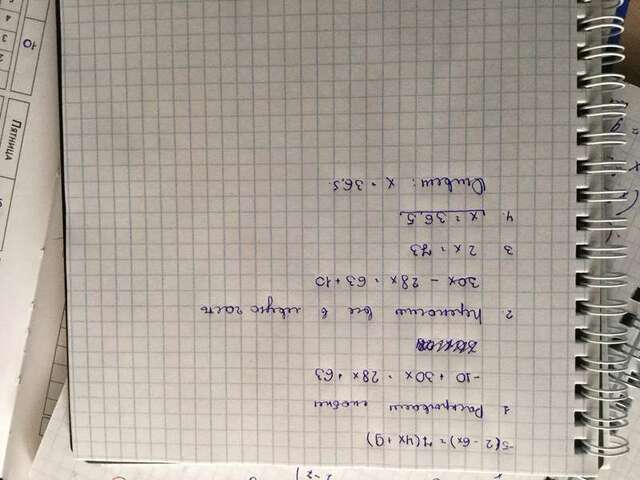 -5(2 - 6x) = 7(4x + 9)
1 Раскрываем скобки
-10 + 30x = 28x + 63
2. Переносим все в левую часть
30x - 28x = 63 + 10
3 2x = 73
4. x = 36,5
Ответ: x = 36,5.
Пятница
10
2
3
4